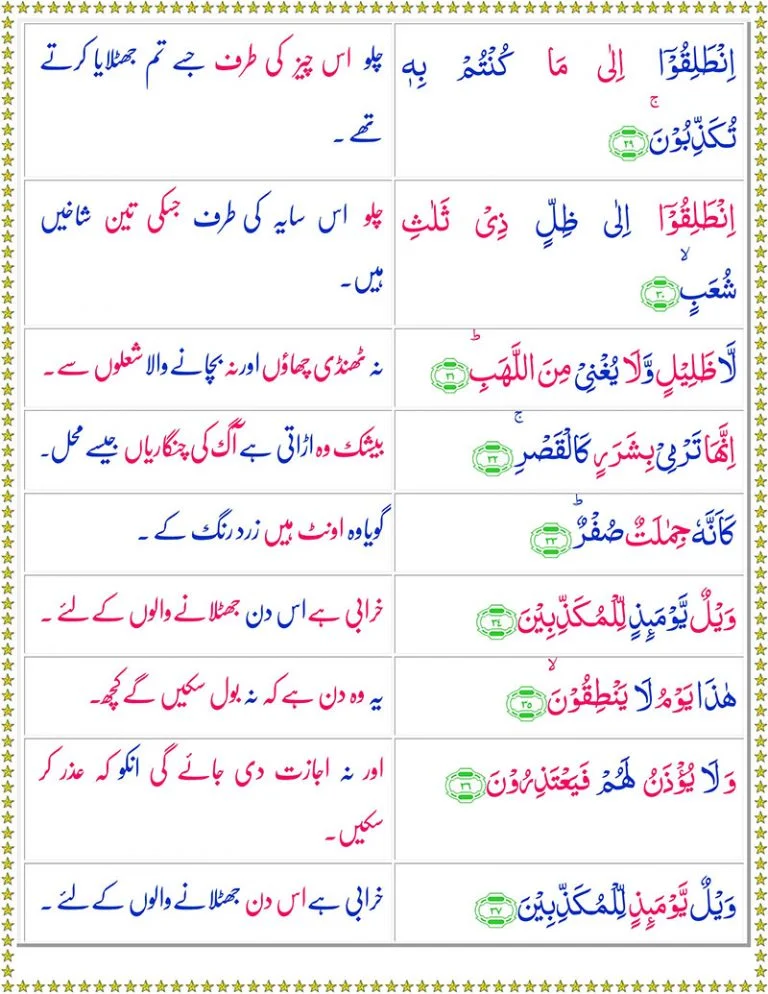 اِنْطَلِقُوْۤا اِلٰى مَا كُنْتُمْ بِهٖ
تُكَذِّبُوْنَۚ ۲۹
چلو اس چیز کی طرف جسے تم جھٹلایا کرتے
تھے ۔
اِنْطَلِقُوْۤا اِلٰى ظِلٍّ ذِىْ ثَلٰثِ
شُعَبٍۙ ۳۰
چلو اس سایہ کی طرف جسکی تین شاخیں
ہیں۔
لَّا ظَلِيْلٍ وَّلَا يُغْنِىْ مِنَ اللَّهَبِؕ ۳۱
نہ ٹھنڈی چھاؤں اور نہ بچانے والا شعلوں سے ۔
اِنَّهَا تَرْمِىْ بِشَرَرٍ كَالْقَصْرِۚ ۳۲
بیشک وہ اڑاتی ہے آگ کی چنگاریاں جیسے محل۔
كَاَنَّهٗ جِمٰلَتٌ صُفْرٌؕ ۳۳
گویا وہ اونٹ ہیں زرد رنگ کے ۔
وَيْلٌ يَّوْمَئِذٍ لِّلْمُكَذِّبِيْنَ ۳۴
خرابی ہے اس دن جھٹلانے والوں کے لئے ۔
هٰذَا يَوْمُ لَا يَنْطِقُوْنَۙ ۳۵
یہ وہ دن ہے کہ نہ بول سکیں گے کچھ۔
وَلَا يُؤْذَنُ لَهُمْ فَيَعْتَذِرُوْنَ ۳۶
اور نہ اجازت دی جائے گی انکو کہ عذر کر
سکیں۔
وَيْلٌ يَّوْمَئِذٍ لِّلْمُكَذِّبِيْنَ ۳۷
خرابی ہے اس دن جھٹلانے والوں کے لئے ۔